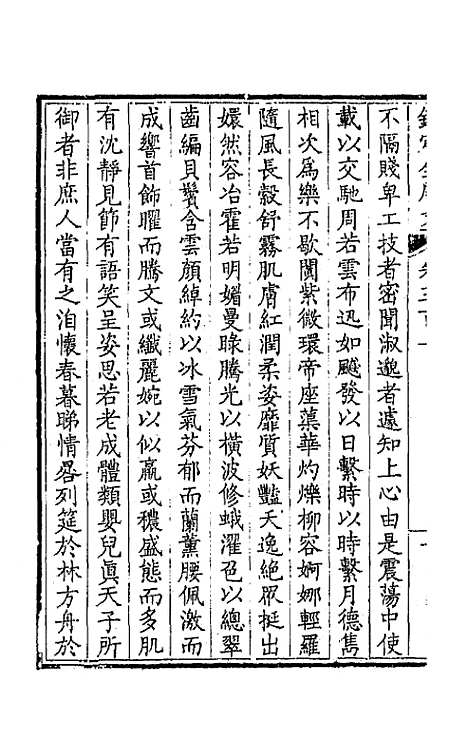 欽定全唐文 卷三百一
不隔賤卑工技者密聞淑邈者遽知上心由是震蕩中使
載以交馳周若雲布迅如飇發以日繫時以時繫月德雋
相次爲樂不歇闐紫微環帝座蕖華灼爍柳容婀娜輕羅
隨風長縠舒霧肌膚紅潤柔姿靡質妖豔夭逸絕眾挺出
嬛然容冶霍若明媚曼睩騰光以橫波修蛾濯色以總翠
齒編貝鬢含雲顏綽約以冰雪氣芬郁而蘭薰腰佩激而
成響首飾曜而騰文或纖麗婉以似羸或穠盛態而多肌
有沈靜見節有語笑呈姿思若老成體類嬰兒眞天子所
御者非庶人當有之洎懷春暮睇情晷列筵於林方舟於